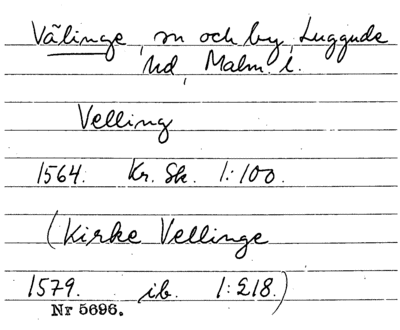 Välinge, sn och by, Luggude
hd, Malm. l.
Velling
1564. Kr. Sk. 1:100.
(Kirke Vellinge
1579. ib. 1:218.)
Nr 5696.